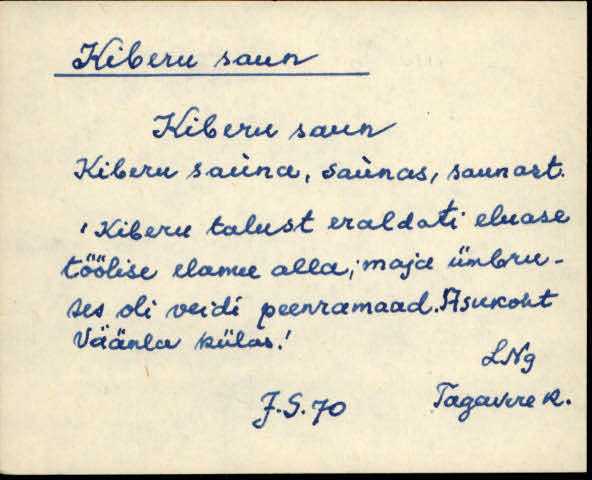 Kiberu saun
Kiberu saun
Kiberu sàuna, sàunas, saunast.
'Kiberu talust eraldati eluase
töölise elamu alla; maja ümbru-
ses oli veidi peenramaad. Asukoht
Väänla külas.'
LNg
J.S.70
Tagavere k.